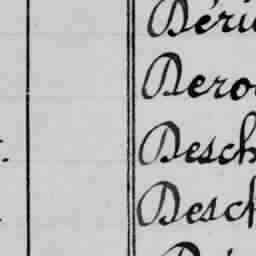 Déri
Dero
Desch
Desch